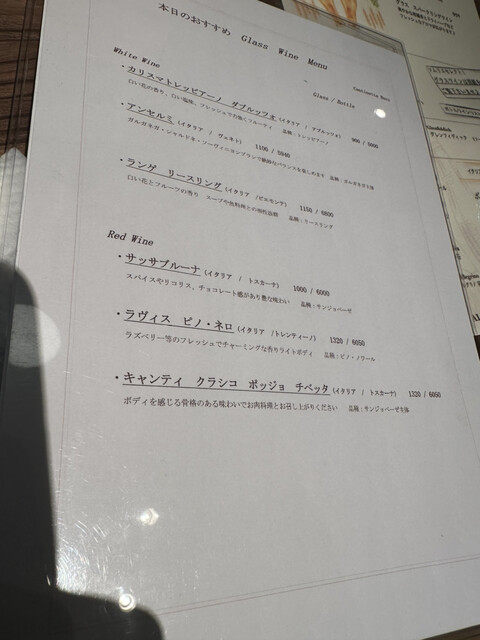 本日のおすすめ Glass Wine Menu
Glass / Bottle
White Wine
・カリスマトレッビアーノ ダブルッツォ(イタリア / アブルッツオ) 900 / 5000
白い花の香り、白い塩味、フレッシュで力強くフルーティ 品種:トレッビアーノ
・アンセルミ(イタリア / ヴェネト) 1100 / 5940
ガルガネガ・シャルドネ・ソーヴィニヨンブランで絶妙なバランスを楽しめます
・ランゲ リースリング(イタリア /ピエモンテ) 1150 / 6800
白い花とフルーツの香り スープや魚料理との相性抜群 品種:リースリング
Red Wine
・サッサブルーナ(イタリア / トスカーナ) 1000 / 6000
スパイスやリコリス、チョコレート感があり豊な味わい 品種:サンジョベーゼ
・ラヴィス ピノ・ネロ(イタリア /トレンティーノ) 1320 / 6050
ラズベリー等のフレッシュでチャーミングな香りライトボディ 品種:ピノ・ノワール
・キャンティ クラシコ ポッジョ チベッタ(イタリア / トスカーナ) 1320 / 6050
ボディを感じる骨格のある味わいでお肉料理とお召し上がりください 品種:サンジョベーゼ主体
グラス スパークリングワイン